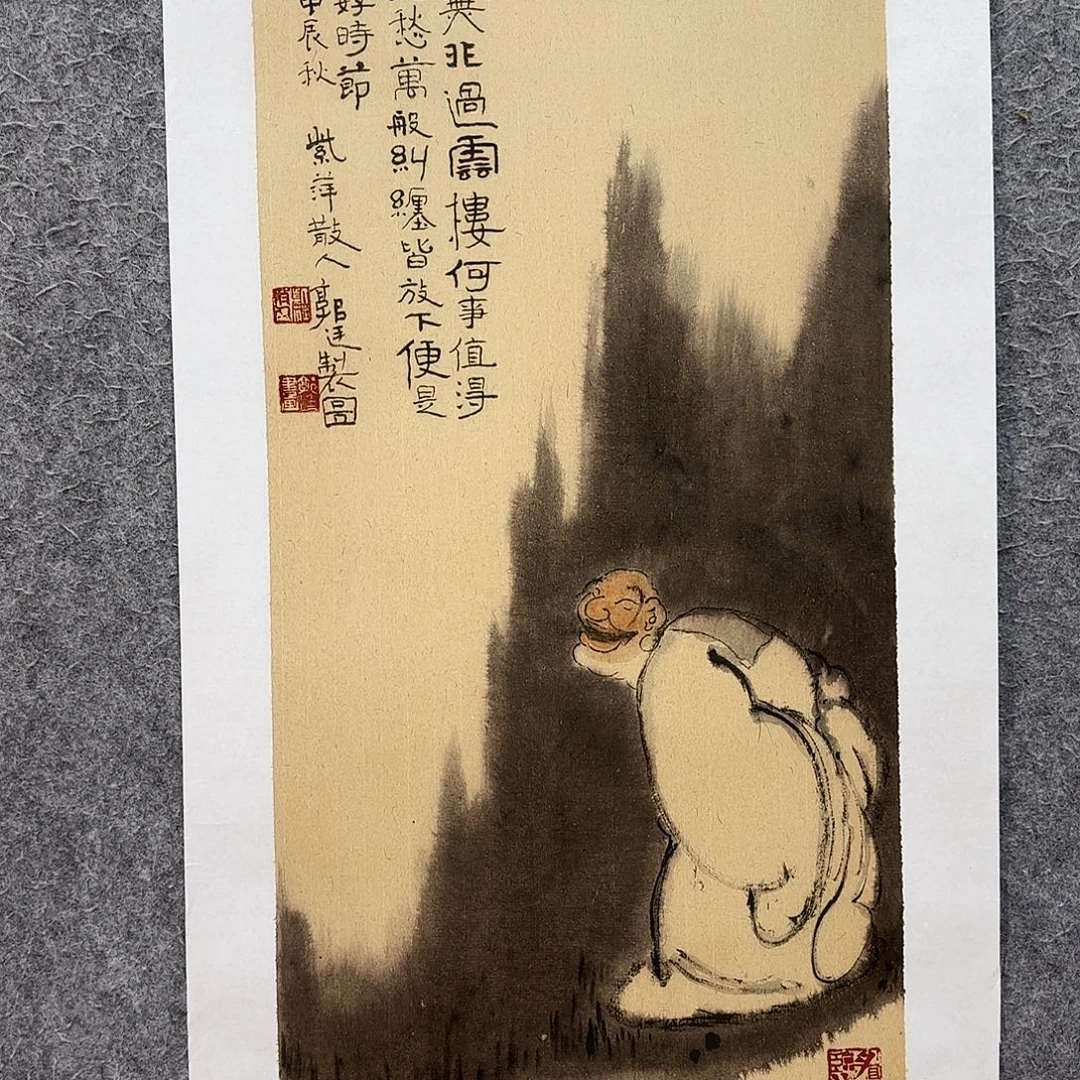 無非過雲樓何事值得
愁萬般糾纏皆放下便是
好時節
甲辰秋 紫萍散人郭廷製圖